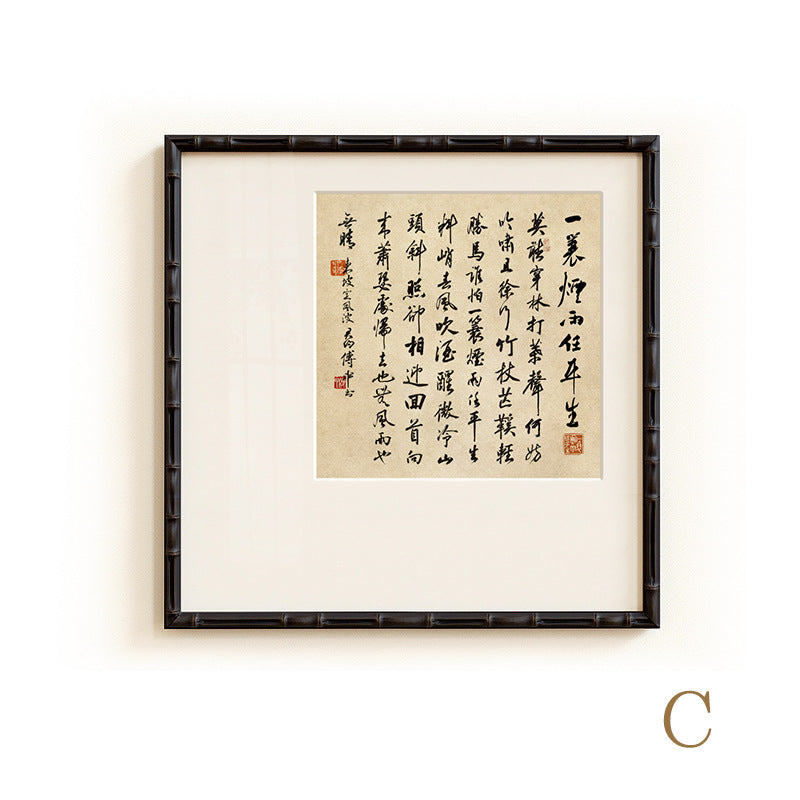 一蓑煙雨任平生
莫聽穿林打葉聲何妨
吟嘯且徐行竹杖芒鞵輕
勝馬誰怕一蓑煙雨任平生
料峭春風吹酒醒微冷山
頭斜照卻相迎回首向
來蕭瑟處歸去也無風雨也
無晴
東坡定風波
C